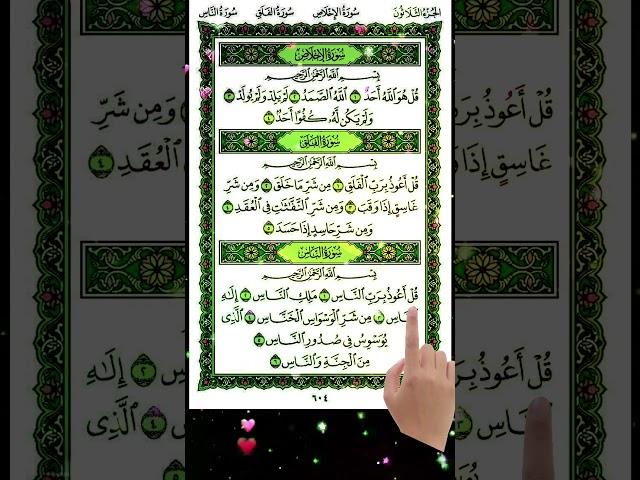 الجُزْءُ الثَّلَاثُونَ سُورَةُ الإِخْلَاصِ سُورَةُ الفَلَقِ سُورَةُ النَّاسِ
سُورَةُ الإِخْلَاصِ
بِسْمِ اللَّهِ الرَّحْمَٰنِ الرَّحِيمِ
قُلْ هُوَ اللَّهُ أَحَدٌ ١ اللَّهُ الصَّمَدُ ٢ لَمْ يَلِدْ وَلَمْ يُولَدْ ٣
وَلَمْ يَكُن لَّهُ كُفُوًا أَحَدٌ ٤
سُورَةُ الفَلَقِ
بِسْمِ اللَّهِ الرَّحْمَٰنِ الرَّحِيمِ
قُلْ أَعُوذُ بِرَبِّ الْفَلَقِ ١ مِن شَرِّ مَا خَلَقَ ٢ وَمِن شَرِّ
غَاسِقٍ إِذَا وَقَبَ ٣ وَمِن شَرِّ النَّفَّٰثَٰتِ فِي الْعُقَدِ ٤
وَمِن شَرِّ حَاسِدٍ إِذَا حَسَدَ ٥
سُورَةُ النَّاسِ
بِسْمِ اللَّهِ الرَّحْمَٰنِ الرَّحِيمِ
قُلْ أَعُوذُ بِرَبِّ النَّاسِ ١ مَلِكِ النَّاسِ ٢ إِلَٰهِ
النَّاسِ ٣ مِن شَرِّ الْوَسْوَاسِ الْخَنَّاسِ ٤ الَّذِي
يُوَسْوِسُ فِي صُدُورِ النَّاسِ ٥
مِنَ الْجِنَّةِ وَالنَّاسِ ٦
٦٠٤